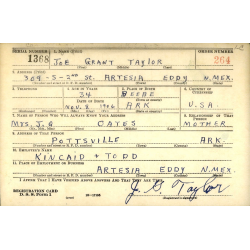 SERIAL NUMBER 1. NAME (Print) ORDER NUMBER
1368 JOE GRANT TAYLOR 264
2. ADDRESS (Print)
309-S-2ND ST. ARTESIA EDDY N.MEX.
3. TELEPHONE 4. AGE IN YEARS 5. PLACE OF BIRTH 6. COUNTRY OF CITIZENSHIP
34 BEEBE
DATE OF BIRTH
NOV. 8 1906 ARK U.S.A.
7. NAME OF PERSON WHO WILL ALWAYS KNOW YOUR ADDRESS 8. RELATIONSHIP OF THAT PERSON
MRS. J.G. OATES MOTHER
9. ADDRESS OF THAT PERSON
POTTSVILLE ARK.
10. EMPLOYER'S NAME
KINCAID + TODD
11. PLACE OF EMPLOYMENT OR BUSINESS
ARTESIA EDDY N.MEX.
I AFFIRM THAT I HAVE VERIFIED ABOVE ANSWERS AND THAT THEY ARE TRUE.
REGISTRATION CARD
D. S. S. Form 1
J. G. Taylor